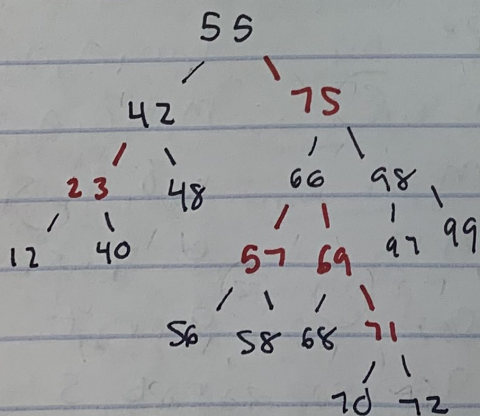 55
42 75
23 48 66 98
12 40 57 69 97 99
56 58 68 71
70 72